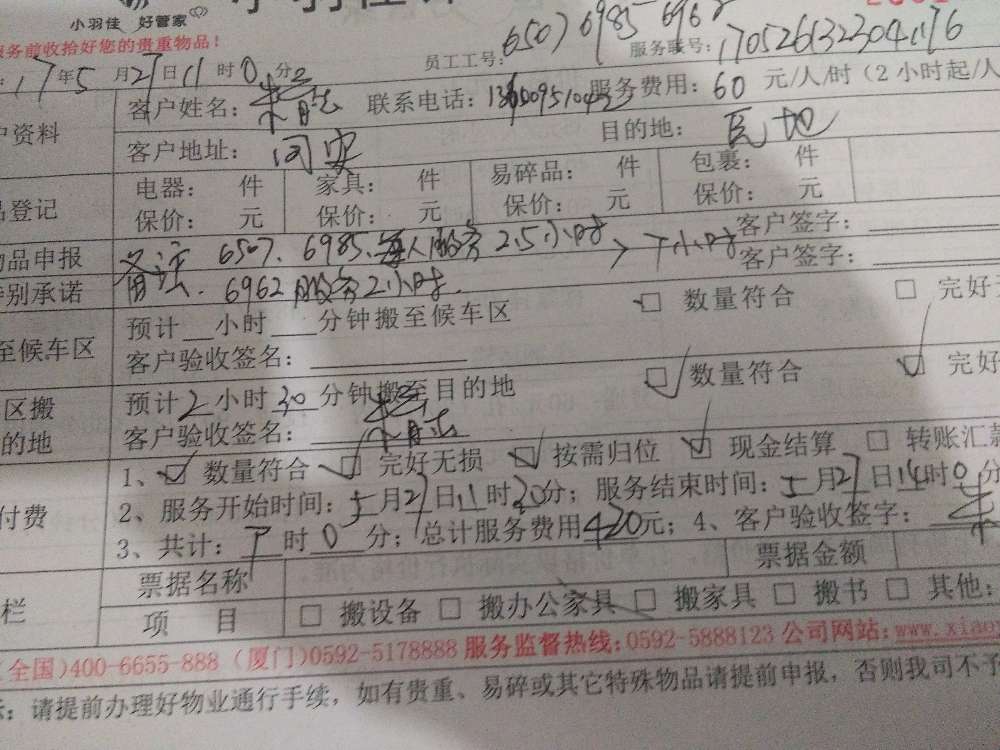 小羽佳 好管家
服务前收拾好您的贵重物品!
员工工号: 6507 6985 6962 服务联号: 17052613230411176
17年5月27日11时0分
客户姓名: 联系电话: 服务费用: 60 元/人/时(2小时起/人
户资料
客户地址: 同安 目的地:
电器: 件 家具: 件 易碎品: 件 包裹: 件
品登记
保价: 元 保价: 元 保价: 元 保价: 元
物品申报 备注 6507、6985、每人服务2.5小时 > 7小时 客户签字:
特别承诺 6962服务2小时. 客户签字:
预计 小时 分钟搬至候车区 数量符合 完好
至候车区
客户验收签名:
区搬 预计2小时30分钟搬至目的地 数量符合 完好
的地 客户验收签名:
1、 数量符合 完好无损 按需归位 现金结算 转账汇款
付费 2、服务开始时间:5月27日11时30分; 服务结束时间:5月27日14时0分
3、共计: 7时0分; 总计服务费用420元; 4、客户验收签字:
票据名称 票据金额
栏 项 目 搬设备 搬办公家具 搬家具 搬书 其他:
(全国)400-6655-888 (厦门)0592-5178888 服务监督热线:0592-5888123 公司网站:www.xiao
示: 请提前办理好物业通行手续, 如有贵重、易碎或其它特殊物品请提前申报, 否则我司不予